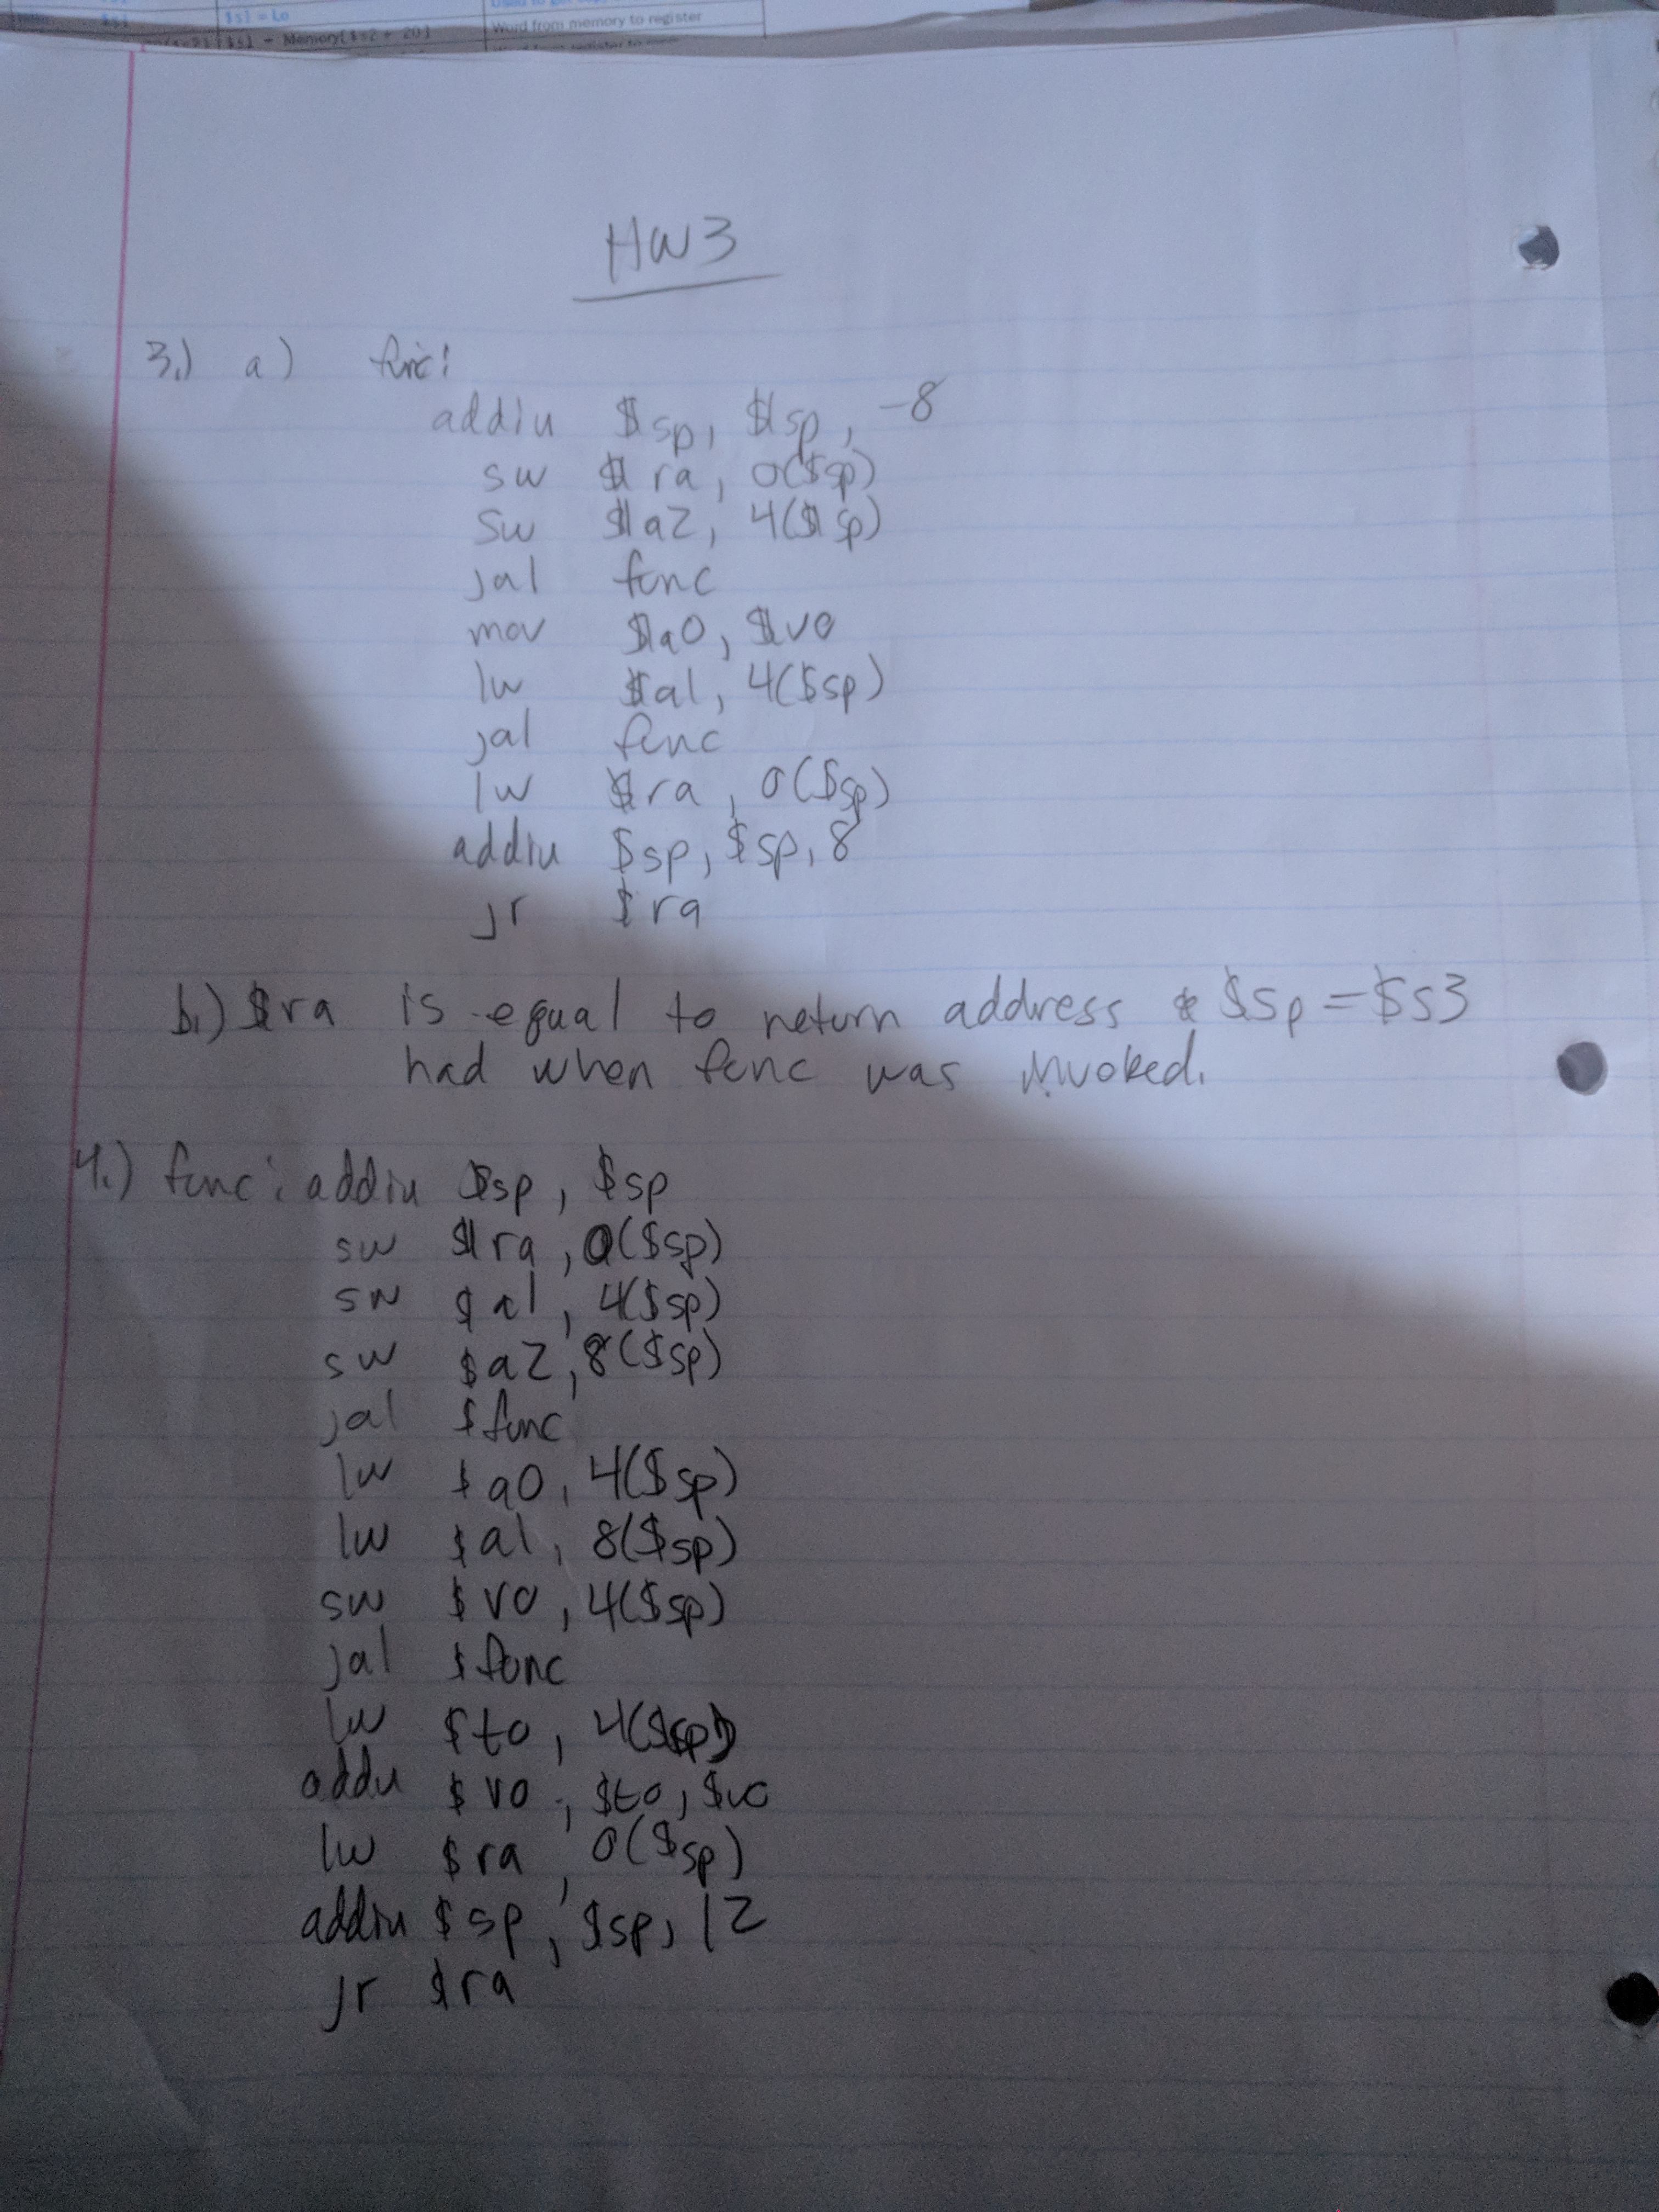 $s1 = Lo
$s1 = Memory[$s2 + 20]
Word from memory to register
HW3
3.) a) func:
addiu $sp, $sp, -8
sw $ra, 0($sp)
sw $a2, 4($sp)
jal func
mov $a0, $v0
lw $a1, 4($sp)
jal func
lw $ra, 0($sp)
addiu $sp, $sp, 8
jr $ra
b.) $ra is equal to return address & $sp = $s3
had when func was invoked.
4.) func: addiu $sp, $sp
sw $ra, 0($sp)
sw $a1, 4($sp)
sw $a2, 8($sp)
jal $func
lw $a0, 4($sp)
lw $a1, 8($sp)
sw $v0, 4($sp)
jal $func
lw $t0, 4($sp)
addu $v0, $t0, $v0
lw $ra, 0($sp)
addiu $sp, $sp, 12
jr $ra